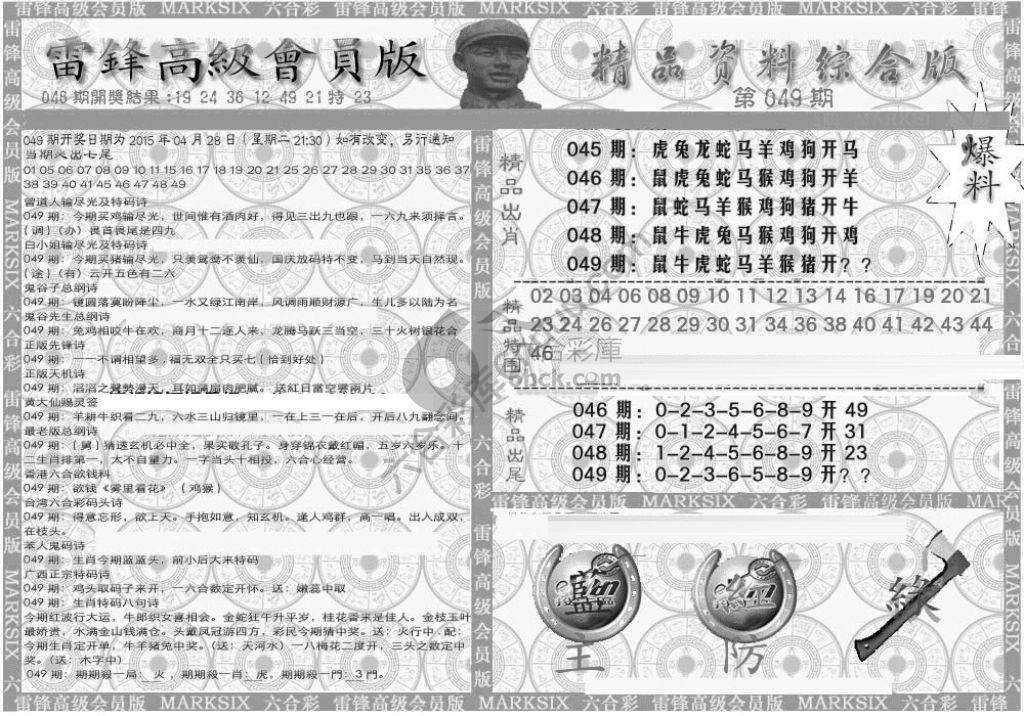 雷锋高级会员版 MARKSIX 六合彩 雷锋高级会员版 MARKSIX 六合彩 雷锋高级会员版 MARKSIX 六合彩 雷锋
雷鋒高級會員版
精品资料综合版
048期開獎結果:19 24 36 12 49 21特 23
第 049 期
爆料
049期开奖日期为2015年04月28日(星期二21:30)如有改变，另行通知
当期必出七尾
01 05 06 07 08 09 10 11 15 16 17 18 19 20 21 25 26 27 28 29 30 31 35 36 37
38 39 40 41 45 46 47 48 49
曾道人输尽光及特码诗
049期：今期买鸡输尽光，世间惟有酒肉好，得见三出九也跟，一六九来须择言。
{调}(办) 畏首畏尾是四九
白小姐输尽光及特码诗
049期：今期买猪输尽光，只羡鸳鸯不羡仙，国庆放码特不变，马到当天自然现。
{途}(有) 云开五色有二六
鬼谷子总纲诗
049期：镜圆落寞盼降尘，一水又绿江南岸，风调雨顺财源广，生儿多以陆为名
鬼谷先生总纲诗
049期：兔鸡相咬牛在欢，商月十二逐人来，龙腾马跃三当空，三十火树银花合
正版先锋诗
049期：一一不谓相望多，福无双全只买七{恰到好处}
正版天机诗
049期：滔滔之聲勢漫天，耳如蒲扇肉肥膩。送紅日當空雲兩片
黄大仙赐灵签
049期：羊耕牛织看二九，六水三山归镜里，一在上三一在后，开后八九翻念间。
最老版总纲诗
049期：{舅}猜透玄机必中全，果实敬孔子。身穿锦衣戴红帽，五岁六岁乐。十
二生肖排第一，太不自量力。一字当头十相投，六合心经营。
香港六合欲钱料
049期：欲钱《雾里看花》 {鸡猴}
台湾六合彩码头诗
049期：得意忘形，欲上天。手抱如意，知玄机。逢人鸡群，高一唱。出入成双，
在枝头。
本人鬼码诗
049期：生肖今期蓝蓝头，前小后大来特码
广西正宗特码诗
049期：鸡头取码子来开，一六合数定开怀。送：嫩蕊中取
049期：生肖特码八句诗
今期红波行大运，牛郎织女喜相会。金蛇狂午升平岁，桂花香来是佳人。金枝玉叶
最娇贵，水满金山钱满仓。头戴凤冠游四方，彩民今期猜中奖。送：火行中·配：
今期生肖定开单，牛羊猪兔中奖。(送：天河水) 一八梅花二度开，三头之数定中
奖。(送：木字中)
049期：期期殺一局：火，期期殺一肖：虎，期期殺一門：3門。
精品出肖
045 期：虎兔龙蛇马羊鸡狗开马
046 期：鼠虎兔蛇马猴鸡狗开羊
047 期：鼠蛇马羊猴鸡狗猪开牛
048 期：鼠牛虎兔马猴鸡狗开鸡
049 期：鼠牛虎蛇马羊猴猪开？？
精品特围
02 03 04 06 08 09 10 11 12 13 14 16 17 19 20 21
23 24 26 27 29 30 31 34 36 38 40 41 42 43 44
46
六合彩庫
6hck.com
精品出尾
046 期：0-2-3-5-6-8-9 开 49
047 期：0-1-2-4-5-6-7 开 31
048 期：1-2-4-5-6-8-9 开 23
049 期：0-2-3-6-5-8-9 开？？
雷锋高级会员版 MARKSIX 六合彩 雷锋高级会员版
藍 紅 綠
主 防
雷锋高级会员版 MARKSIX 六合彩 雷锋高级会员版 MARKSIX 六合彩 雷锋高级会员版 MARKSIX 六合彩 雷锋